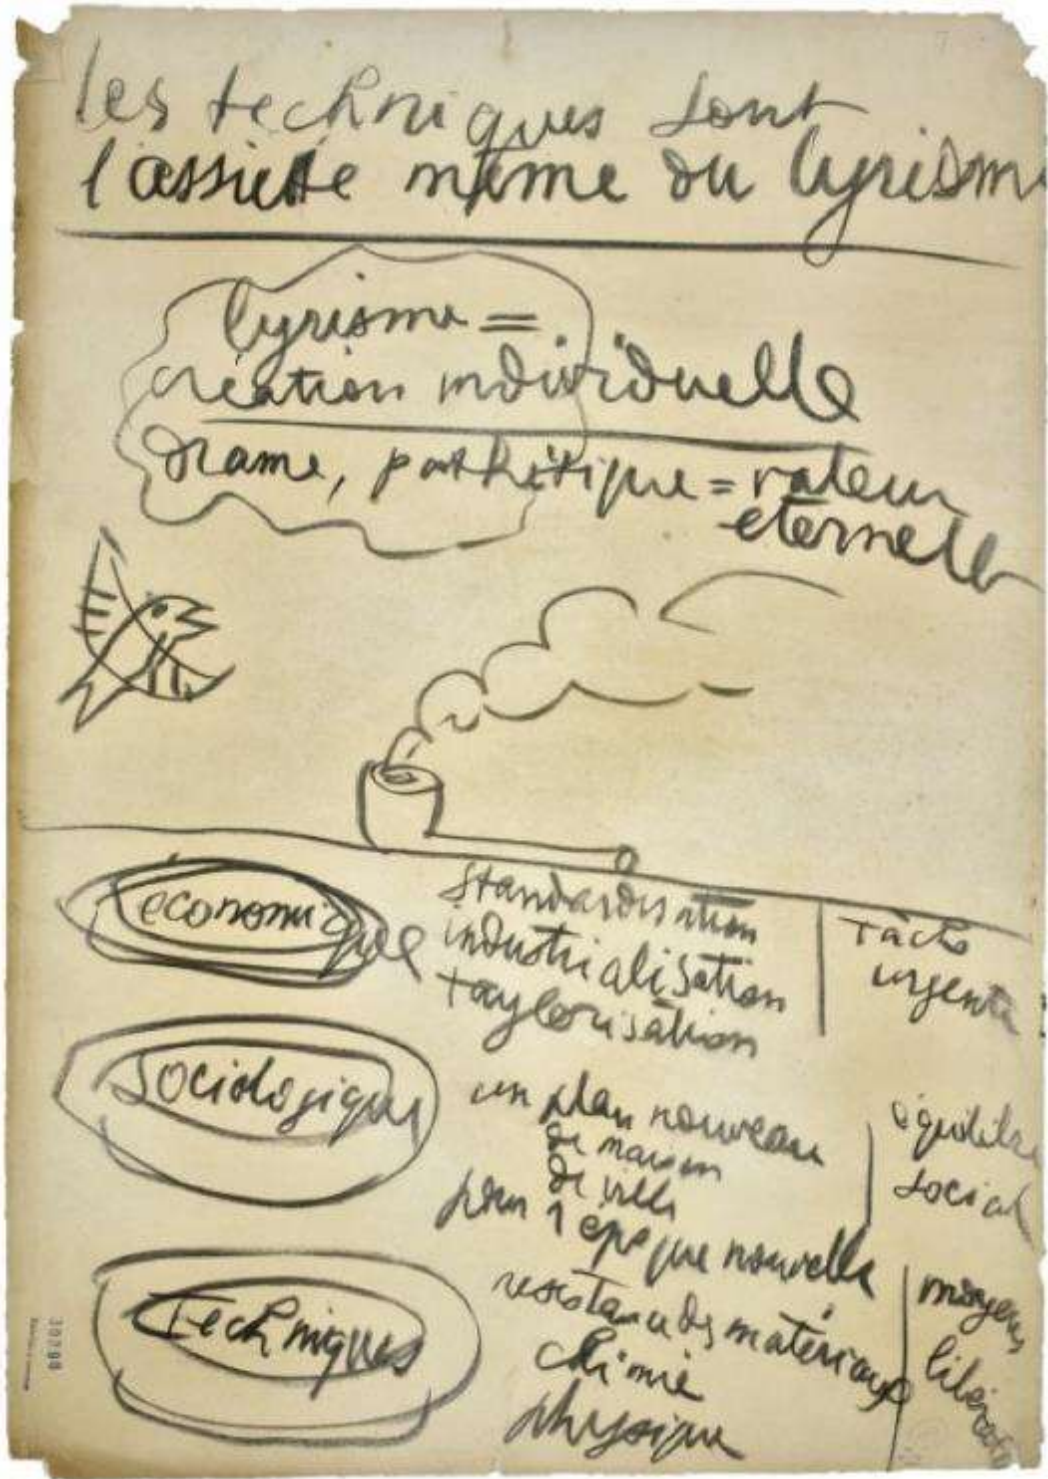 les techniques sont
l'assiette même du lyrisme
lyrisme =
création individuelle
drame, pathétique = valeur
éternelle
économique
standardisation
industrialisation
taylorisation
tâche
urgente
sociologique
un plan nouveau
de maison
de ville
pour 1 époque nouvelle
équilibre
social
Techniques
resistance des matériaux
chimie
physique
moyens
libérateurs
30298